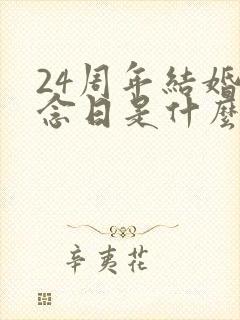 24周年結婚
念日是什麼
辛夷花